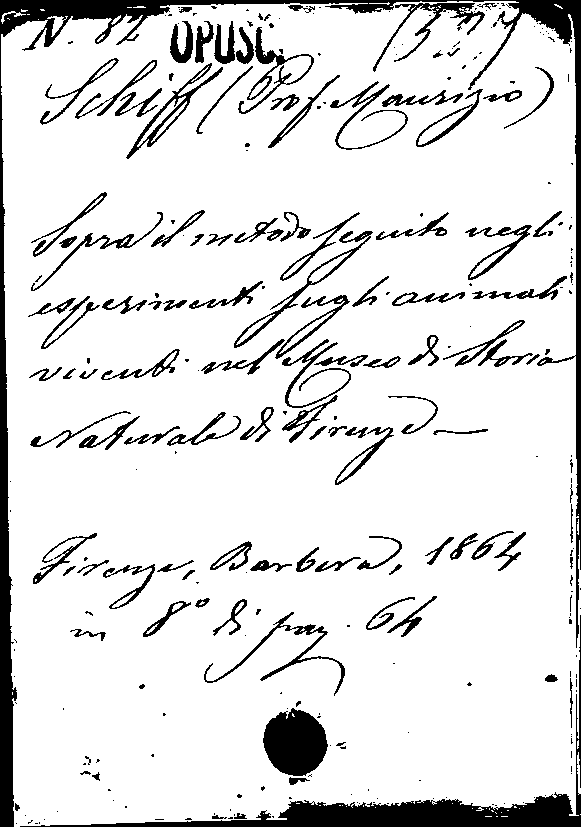 N. 82 OPUSC.
Schiff (Prof. Maurizio)
Sopra il metodo seguito negli
esperimenti sugli animali
viventi nel Museo di Storia
Naturale di Firenze —
Firenze, Barbera, 1864
in 8° di pag. 64